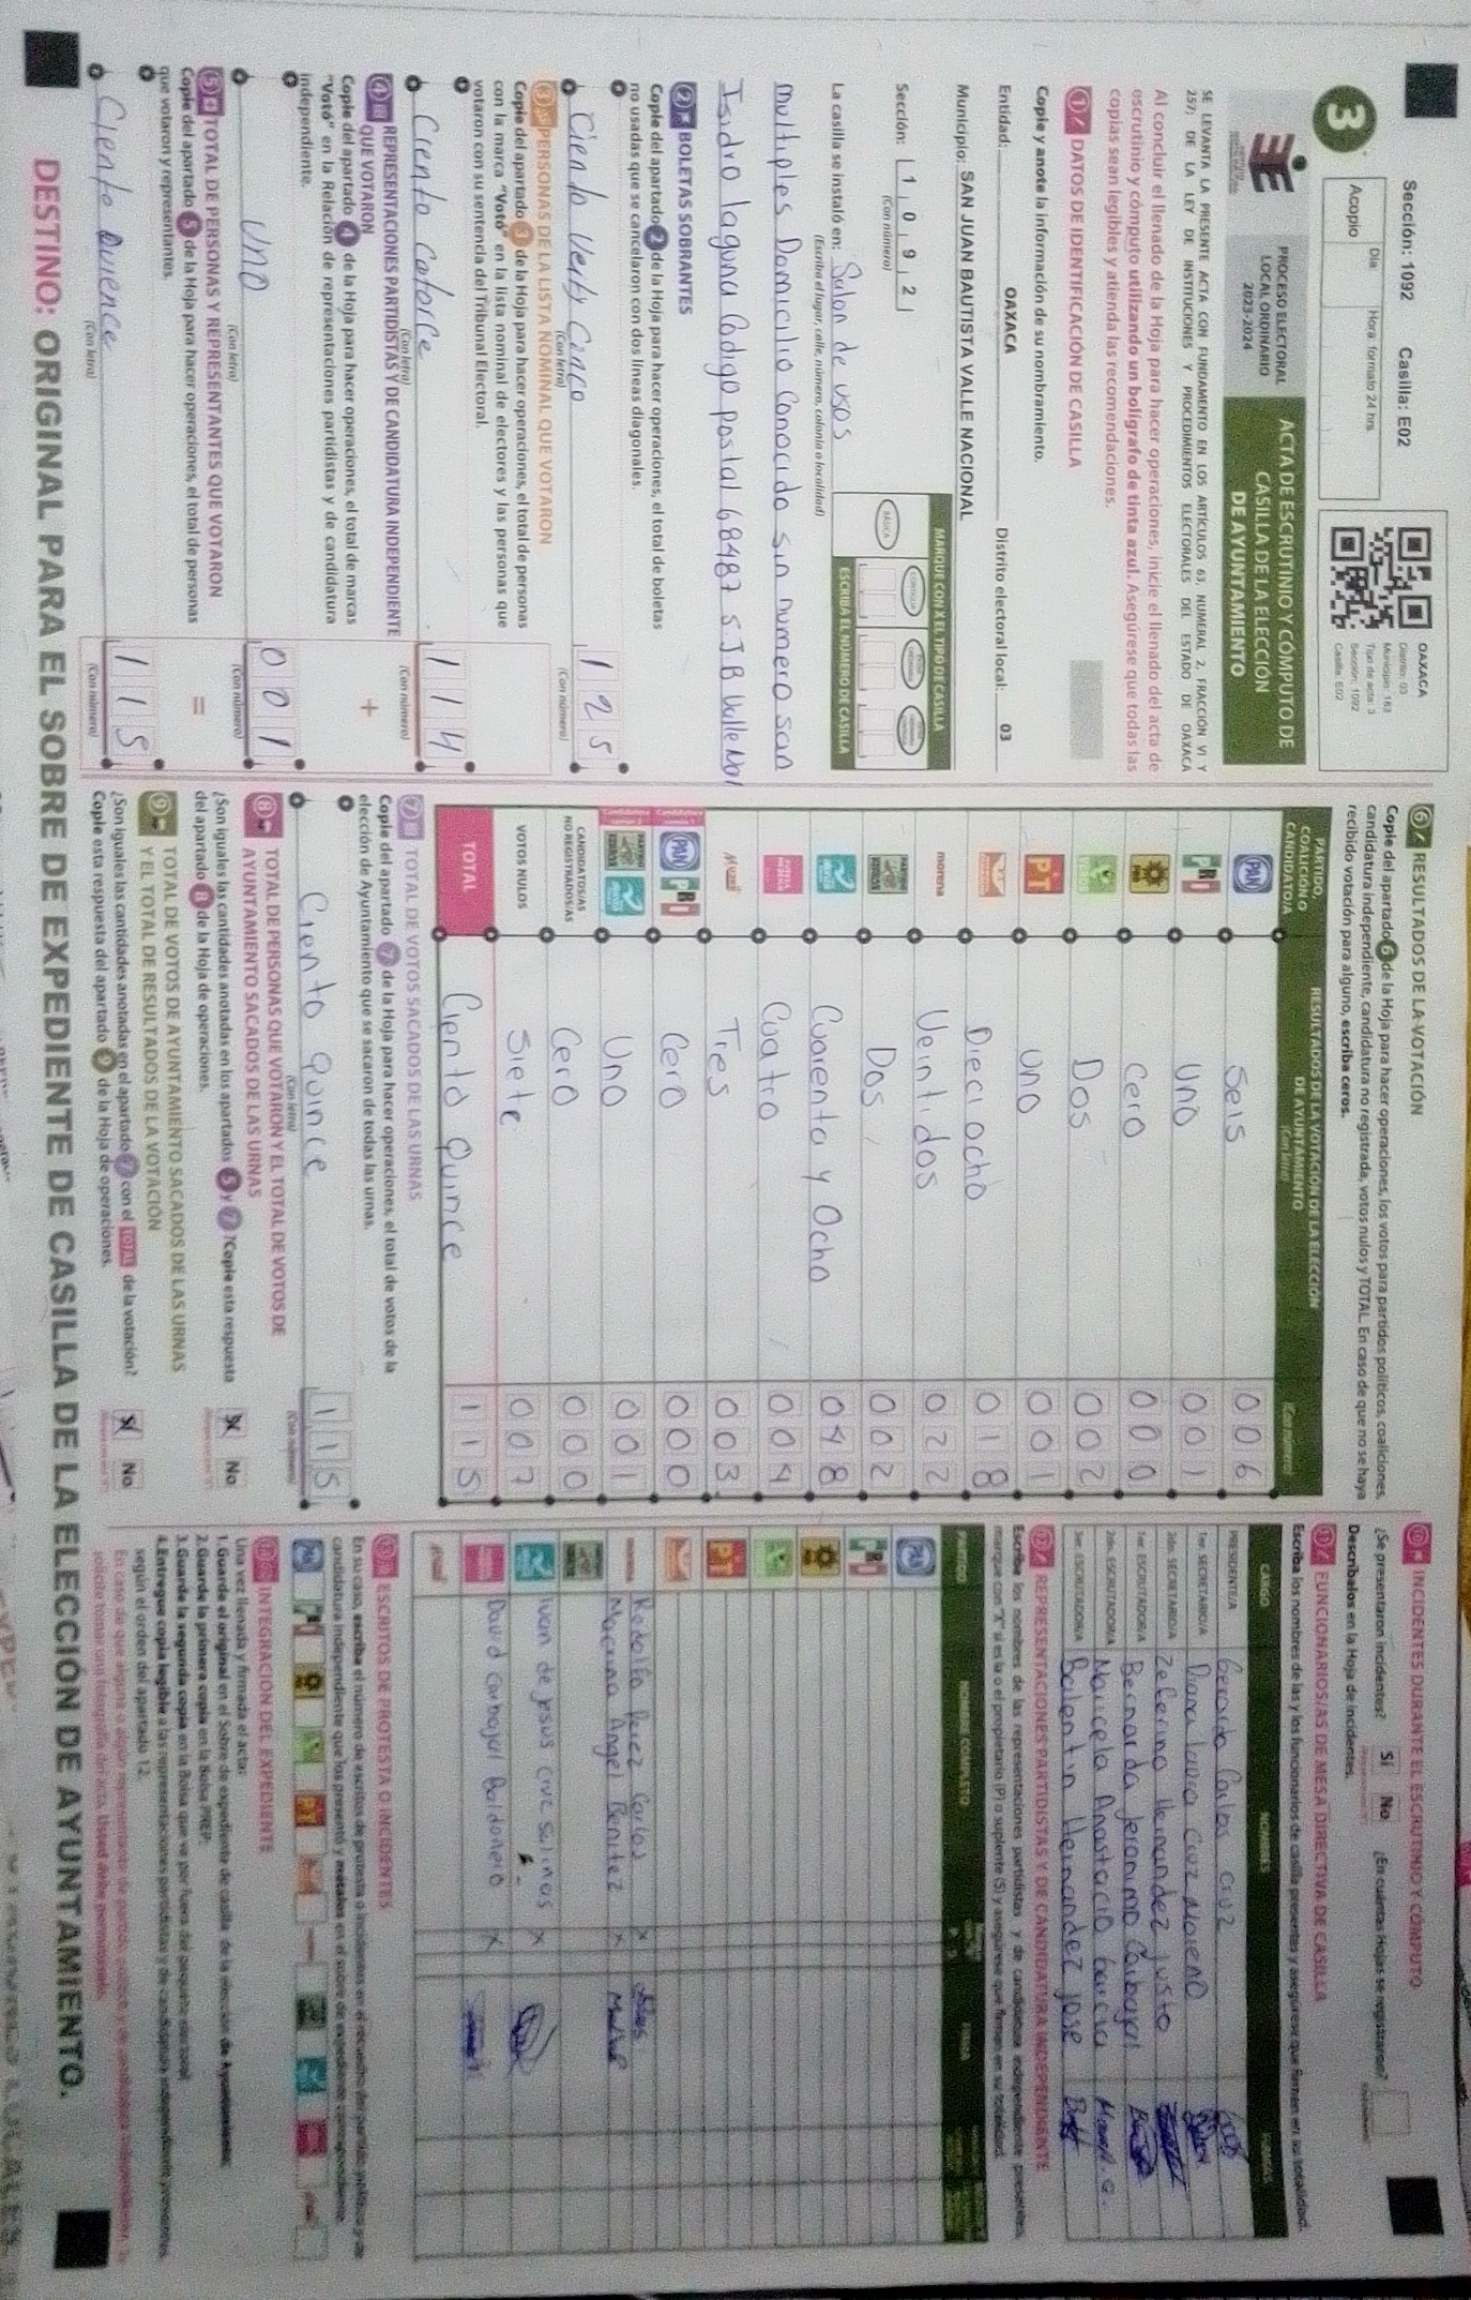 Sección: 1092 Casilla: E02
3
Día Hora formato 24 hrs.
Acopio
OAXACA
Distrito: 03
Municipio: 162
Tipo de acta: 3
Sección: 1092
Casilla: E02
PROCESO ELECTORAL
LOCAL ORDINARIO
2023-2024
ACTA DE ESCRUTINIO Y CÓMPUTO DE
CASILLA DE LA ELECCIÓN
DE AYUNTAMIENTO
SE LEVANTA LA PRESENTE ACTA CON FUNDAMENTO EN LOS ARTÍCULOS 63, NUMERAL 2, FRACCIÓN VI Y
257; DE LA LEY DE INSTITUCIONES Y PROCEDIMIENTOS ELECTORALES DEL ESTADO DE OAXACA
Al concluir el llenado de la Hoja para hacer operaciones, inicie el llenado del acta de
escrutinio y cómputo utilizando un bolígrafo de tinta azul. Asegúrese que todas las
copias sean legibles y atienda las recomendaciones.
1 DATOS DE IDENTIFICACIÓN DE CASILLA
Copie y anote la información de su nombramiento.
Entidad: OAXACA Distrito electoral local: 03
Municipio: SAN JUAN BAUTISTA VALLE NACIONAL
Sección: 1 0 9 2
(Con número)
MARQUE CON X EL TIPO DE CASILLA
BÁSICA
ESCRIBA EL NÚMERO DE CASILLA
La casilla se instaló en: Salon de usos
(Escriba el lugar, calle, número, colonia o localidad)
multiples Domicilio Conocido sin numero san
Isidro laguna Codigo postal 68487 S J B Valle Nal
2 BOLETAS SOBRANTES
Copie del apartado 2 de la Hoja para hacer operaciones, el total de boletas
no usadas que se cancelaron con dos líneas diagonales.
Ciento Veity Cinco 1 2 5
(Con letra) (Con número)
3 PERSONAS DE LA LISTA NOMINAL QUE VOTARON
Copie del apartado 3 de la Hoja para hacer operaciones, el total de personas
con la marca "Votó" en la lista nominal de electores y las personas que
votaron con su sentencia del Tribunal Electoral.
Ciento Catorce 1 1 4
(Con letra) (Con número)
4 REPRESENTACIONES PARTIDISTAS Y DE CANDIDATURA INDEPENDIENTE
QUE VOTARON +
Copie del apartado 4 de la Hoja para hacer operaciones, el total de marcas
"Votó" en la Relación de representaciones partidistas y de candidatura
independiente.
Uno 0 0 1
(Con letra) (Con número)
5 TOTAL DE PERSONAS Y REPRESENTANTES QUE VOTARON =
Copie del apartado 5 de la Hoja para hacer operaciones, el total de personas
que votaron y representantes.
Ciento Quience 1 1 5
(Con letra) (Con número)
6 RESULTADOS DE LA VOTACIÓN
Copie del apartado 6 de la Hoja para hacer operaciones, los votos para partidos políticos, coaliciones,
candidatura independiente, candidatura no registrada, votos nulos y TOTAL. En caso de que no se haya
recibido votación para alguno, escriba ceros.
PARTIDO,
COALICIÓN O
CANDIDATO/A
RESULTADOS DE LA VOTACIÓN DE LA ELECCIÓN
DE AYUNTAMIENTO
(Con letra) (Con número)
PAN Seis 0 0 6
PRI Uno 0 0 1
PRD Cero 0 0 0
VERDE Dos 0 0 2
PT Uno 0 0 1
Dieci ocho 0 1 8
morena Veintidos 0 2 2
Dos 0 0 2
Cuarenta y Ocho 0 4 8
Cuatro 0 0 4
Tres 0 0 3
PAN PRI Cero 0 0 0
Uno 0 0 1
CANDIDATOS/AS
NO REGISTRADOS/AS Cero 0 0 0
VOTOS NULOS Siete 0 0 7
TOTAL Ciento Quince 1 1 5
7 TOTAL DE VOTOS SACADOS DE LAS URNAS
Copie del apartado 7 de la Hoja para hacer operaciones, el total de votos de la
elección de Ayuntamiento que se sacaron de todas las urnas.
Ciento Quince 1 1 5
(Con letra) (Con número)
8 TOTAL DE PERSONAS QUE VOTARON Y EL TOTAL DE VOTOS DE
AYUNTAMIENTO SACADOS DE LAS URNAS
¿Son iguales las cantidades anotadas en los apartados 5 y 7? Copie esta respuesta
del apartado 8 de la Hoja de operaciones. Sí No
9 TOTAL DE VOTOS DE AYUNTAMIENTO SACADOS DE LAS URNAS
Y EL TOTAL DE RESULTADOS DE LA VOTACIÓN
¿Son iguales las cantidades anotadas en el apartado 7 con el TOTAL de la votación?
Copie esta respuesta del apartado 9 de la Hoja de operaciones. Sí No
10 INCIDENTES DURANTE EL ESCRUTINIO Y CÓMPUTO
¿Se presentaron incidentes? Sí No ¿En cuántas Hojas se registraron?
Descríbalos en la Hoja de incidentes.
11 FUNCIONARIOS/AS DE MESA DIRECTIVA DE CASILLA
Escriba los nombres de las y los funcionarios de casilla presentes y asegúrese que firmen en su totalidad.
CARGO NOMBRES FIRMAS
PRESIDENTE/A Gerardo Carlos Cruz
1er. SECRETARIO/A Diana Laura Cruz Moreno
2do. SECRETARIO/A Zeferino Hernandez Justo
1er. ESCRUTADOR/A Bernarda Jeronimo Carbajal
2do. ESCRUTADOR/A Maricela Anastacio Garcia
3er. ESCRUTADOR/A Balentin Hernandez Jose
12 REPRESENTACIONES PARTIDISTAS Y DE CANDIDATURA INDEPENDIENTE
Escriba los nombres de las representaciones partidistas y de candidatura independiente presentes,
marque con "X" si es la o el propietario (P) o suplente (S) y asegúrese que firmen en su totalidad.
PARTIDO NOMBRE COMPLETO P S FIRMA
PAN
PRI
PRD
VERDE
PT
morena Rodolfo Perez Carlos X
Macrina Angel Benitez X
Ivan de jesus cruz salinas X
David Carbajal Baldonero X
13 ESCRITOS DE PROTESTA O INCIDENTES
En su caso, escriba el número de escritos de protesta o incidentes en el recuadro del partido político y de
candidatura independiente que los presentó y métalos en el sobre de expediente correspondiente.
14 INTEGRACIÓN DEL EXPEDIENTE
Una vez llenada y firmada el acta:
1. Guarde el original en el Sobre de expediente de casilla de la elección de Ayuntamiento.
2. Guarde la primera copia en la Bolsa PREP.
3. Guarde la segunda copia en la Bolsa que va por fuera del paquete electoral.
4. Entregue copia legible a las representaciones partidistas y de candidatura independiente presentes,
según el orden del apartado 12.
DESTINO: ORIGINAL PARA EL SOBRE DE EXPEDIENTE DE CASILLA DE LA ELECCIÓN DE AYUNTAMIENTO.